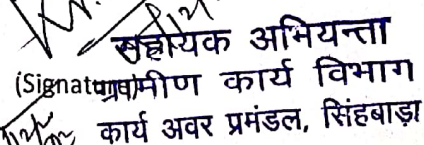 सहायक अभियन्ता
(Signature) ग्रामीण कार्य विभाग
कार्य अवर प्रमंडल, सिंहबाड़ा